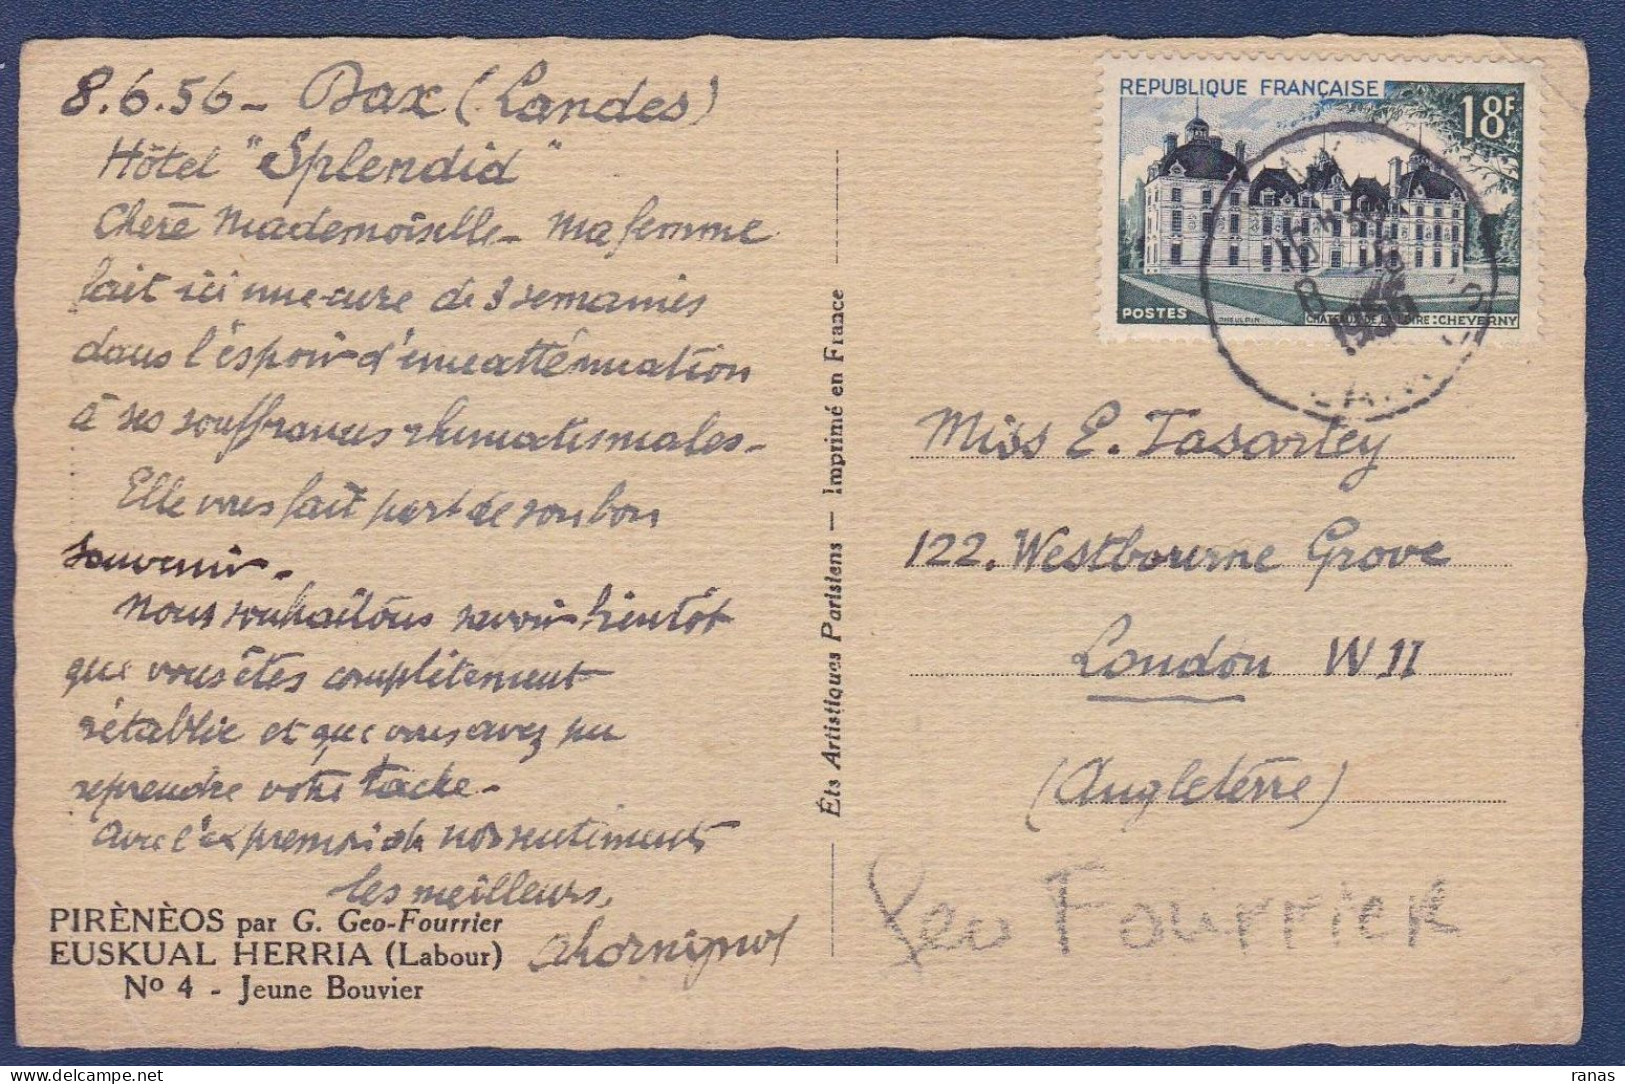 8.6.56 - Dax (Landes)
Hôtel "Splendid"
Chère Mademoiselle - Ma femme
fait ici une cure de 3 semaines
dans l'espoir d'une atténuation
à ses souffrances rhumatismales -
Elle vous fait part de son bon
souvenir -
Nous souhaitons savoir bientôt
que vous êtes complètement
rétablie et que vous avez pu
reprendre votre tâche -
Avec l'expression de nos sentiments
les meilleurs,
PIRÈNÈOS par G. Geo-Fourrier
EUSKUAL HERRIA (Labour)
Nº 4 - Jeune Bouvier
Éts Artistiques Parisiens — Imprimé en France
REPUBLIQUE FRANÇAISE
18F
POSTES
CHATEAUX DE LA LOIRE : CHEVERNY
1956
Miss E. Tasartey
122. Westbourne Grove
London W 11
(Angleterre)
Geo Fourrier
ranas